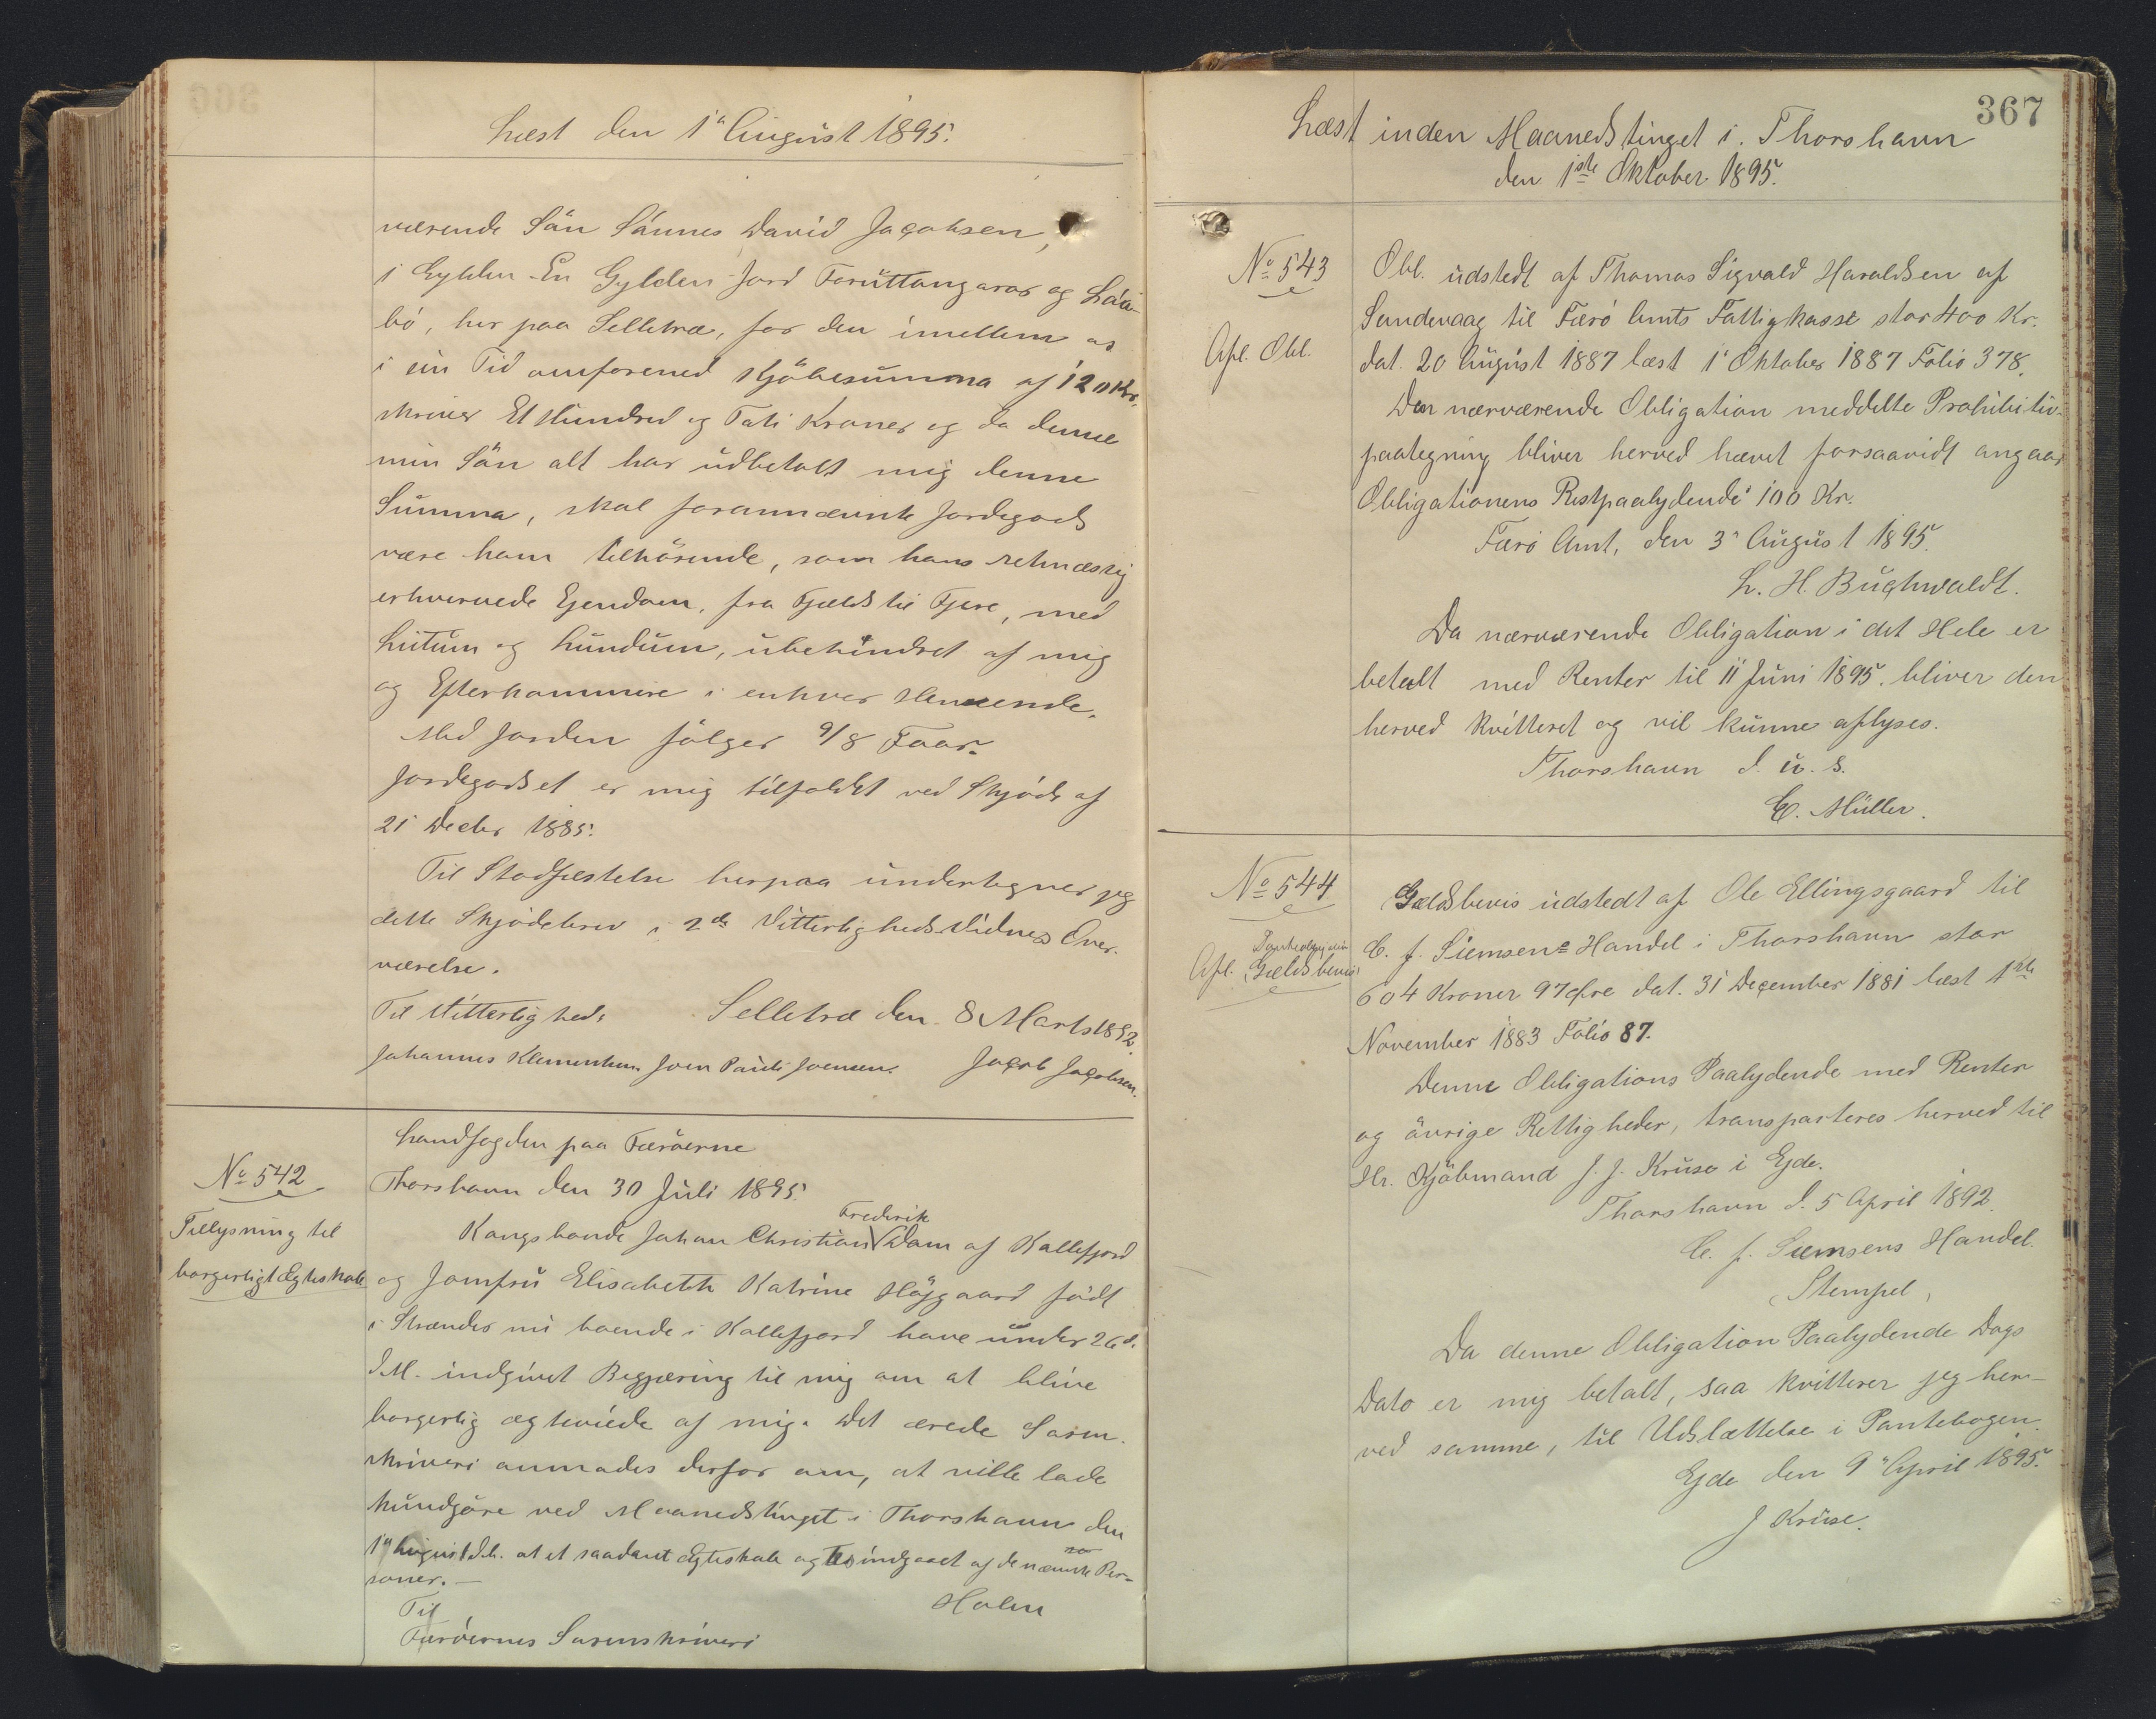 Læst den 1ᵗᵉ August 1895.
værende Sön Sännes David Jacobsen,
i Gylden En Gylden Jord Foruttangarar og Láa-
bö, her paa Selletræ, for den imellem os
i sin Tid omforened Kjöbesumma af 120 Kr.
skriver Et Hundred og Toti Kroner og da denne
min Sön alt har udbetalt mig denne
Summa, skal forannævnte Jordegods
være ham tilhörende, som hans retmæssig
erhvervede Ejendom, fra Fjeld til Fjere, med
lutum og lundum, ubehindret af mig
og Efterkommere i enhver Henseende.
Med Jorden fölger 9/8 Faar.
Jordegodset er mig tilfaldet ved Skjöde af
21 Decbr 1885.
Til Stadfæstelse herpaa undertegner jeg
dette Skjödebrev i 2de Vitterligheds Vidners Over-
værelse.
Til Vitterlighed: Selletræ den 8 Marts 1892.
Johannes Klementsen Joen Pauli Joensen. Jacob Jacobsen.
Nº 542
Tillysning til
borgerligt Ægteskab
Landfogden paa Færöerne
Thorshavn den 30 Juli 1895.
Frederik
Kongsbonde Johan Christian Dam af Kollefjord
og Jomfru Elisabeth Katrine Höjgaard födt
i Strænder nu boende i Kollefjord have under 26 d.
D.M. indgivet Begjæring til mig om at blive
borgerlig ægteviede af mig. Det ærede Soren-
skriveri anmodes derfor om, at ville lade
kundgöre ved Maanedstinget i Thorshavn den
1ᵗᵉ August d.A. at et saadant Ægteskab agtes indgaaet af de nævnte Per-
soner.—
Holm
Til
Færöernes Sorenskriveri
367
Læst inden Maanedstinget i Thorshavn
den 1ste Oktober 1895.
Nº 543
Afl. Obl.
Obl. udstedt af Thomas Sigvald Haraldsen af
Sandevaag til Færö Amts Fattigkasse stor 400 Kr.
dat. 20 August 1887 læst 1' Oktober 1887 Folio 378.
Den nærværende Obligation meddelte Prohibitiv-
paategning bliver herved hævet forsaavidt angaar
Obligationens Restpaalydende 100 Kr.
Færö Amt, den 3' August 1895.
L. H. Buchwaldt.
Da nærværende Obligation i det Hele er
betalt med Renter til 11 Juni 1895. bliver den
herved kvitteret og vil kunne aflyses.
Thorshavn d. u. s.
C. Müller.
Nº 544
Pantobligation
Afl. Gældsbevis
Gældsbevis udstedt af Ole Ellingsgaard til
C. f. Siemsens Handel i Thorshavn stor
604 Kroner 97 Øre dat. 31 December 1881 læst 1ste
November 1883 Folio 87.
Denne Obligations Paalydende med Renter
og övrige Rettigheder, transporteres herved til
Hr. Kjöbmand J. J. Kruse i Ejde.
Thorshavn d. 5 April 1892.
C. f. Siemsens Handel.
(Stempel)
Da denne Obligation Paalydende Dags
Dato er mig betalt, saa kvitterer jeg her-
ved samme, til Udslættelse i Pantebogen.
Ejde den 9ᵈᵉ April 1895.
J Kruse.